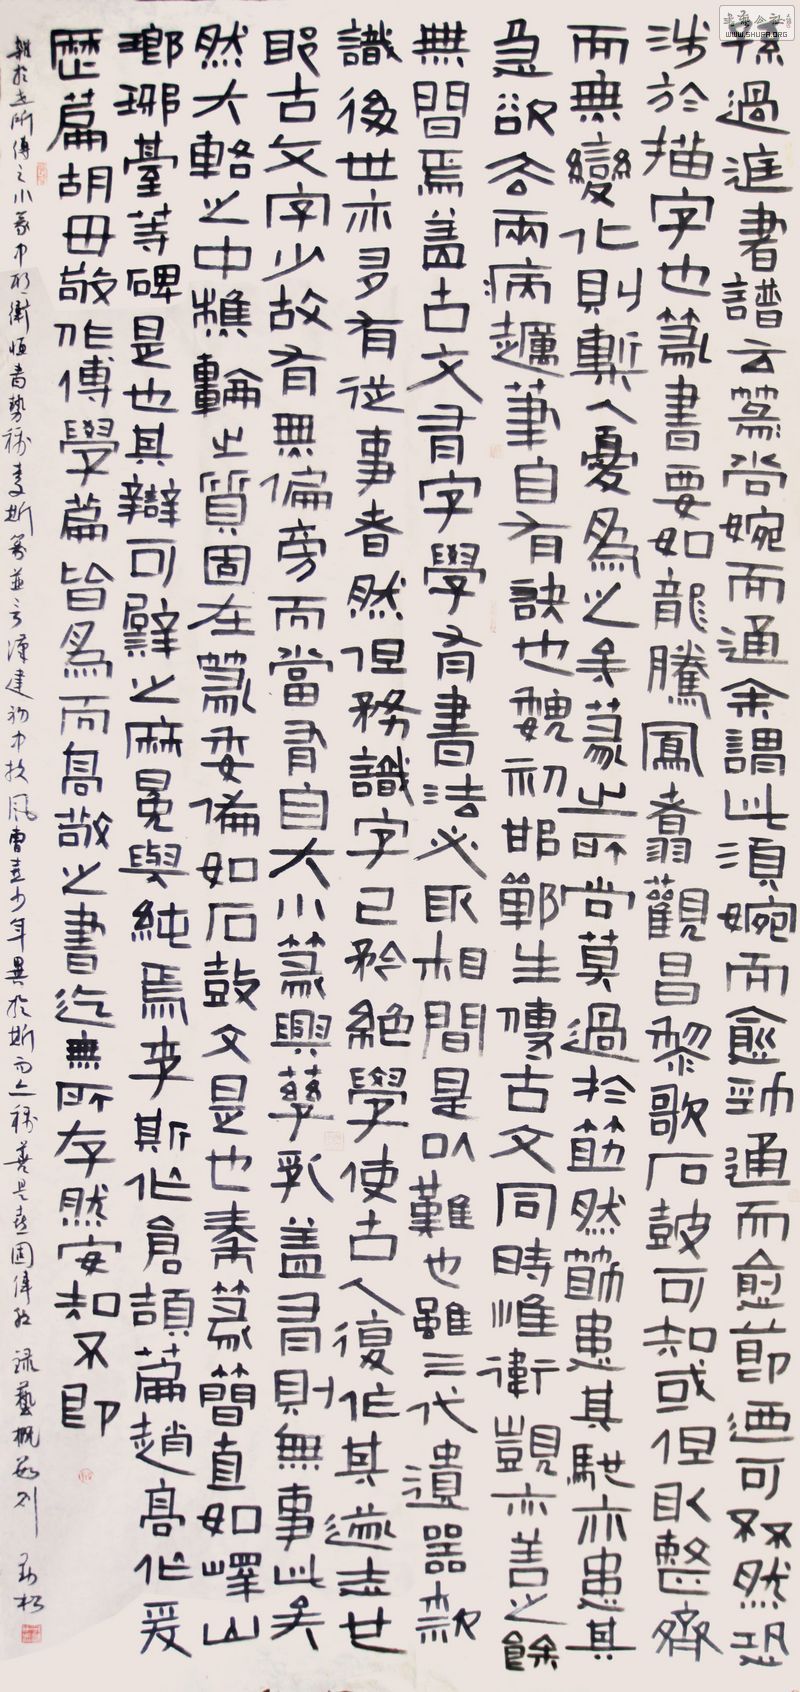 孫過庭書譜云篆尚婉而通余謂此須婉而愈勁通而愈節迺可不然恐
涉於描字也篆書要如龍騰鳳翥觀昌黎歌石鼓可知或但取整齊
而無變化則槧人優爲之矣篆之所尚莫過於筋然筋患其馳亦患其
急欲去兩病趯筆自有訣也魏初邯鄲生傳古文同時惟衛覬亦善之餘
無聞焉蓋古文有字學有書法必取相間是以難也雖三代遺器款
識後世亦多有從事者然但務識字已矜絕學使古人復作其遂志也
耶古文字少故有無偏旁而當有自大小篆興孳乳蓋有則無事此矣
然大輅之中椎輪之質固在篆委備如石鼓文是也秦篆簡直如嶧山
瑯琊臺等碑是也其辯可譬之麻冕與純焉李斯作倉頡篇趙高作爰
歷篇胡毋敬作博學篇皆爲而高敬之書迄無所存然安知不即
雜於世所傳之小篆中耶衛恒書勢稱李斯篆並言漢建初中扶風曹喜少異於斯而亦稱善是喜固偉 錄藝概
書法公社
WWW.SHUFA.ORG